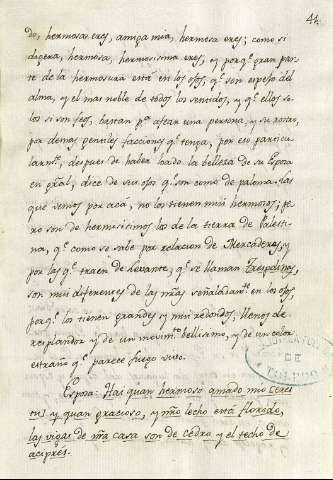 44
do, hermosa eres, amiga mia, hermosa eres; como si
digera, hermosa, hermosissima eres, y porq.e gran par-
te de la hermosura está en los ojos, q.e son espejo del
alma, y el mas noble de todos los sentidos, y q.e ellos so-
los si son feos, bastan p.a afear una persona, y su rostro,
por demas perfiles facciones q.e tenga, por eso particu-
larm.te, despues de haber loado la belleza de su Esposa
en gral, dice de sus ojos q.e son como de paloma. Las
que vemos por acá, no los tienen mui hermosos; pe-
ro son de hermosissimos los de la tierra de Palesti-
na, q.e como se sabe por relacion de Mercaderes, y
por las q.e traen de Levante, q.e se llaman
son mui diferentes de las nras señaladam.te en los ojos,
porq.e los tienen grandes y mui redondos, llenos de
resplandor y de un movim.to bellissimo, y de un color
estraño q.e parece fuego vivo.
Esposa: Hai quan hermoso amado mio eres
tu, y quan gracioso, y nro lecho está florido,
las vigas de nra casa son de cedro y el techo de
acipres.
DE
TOLEDO